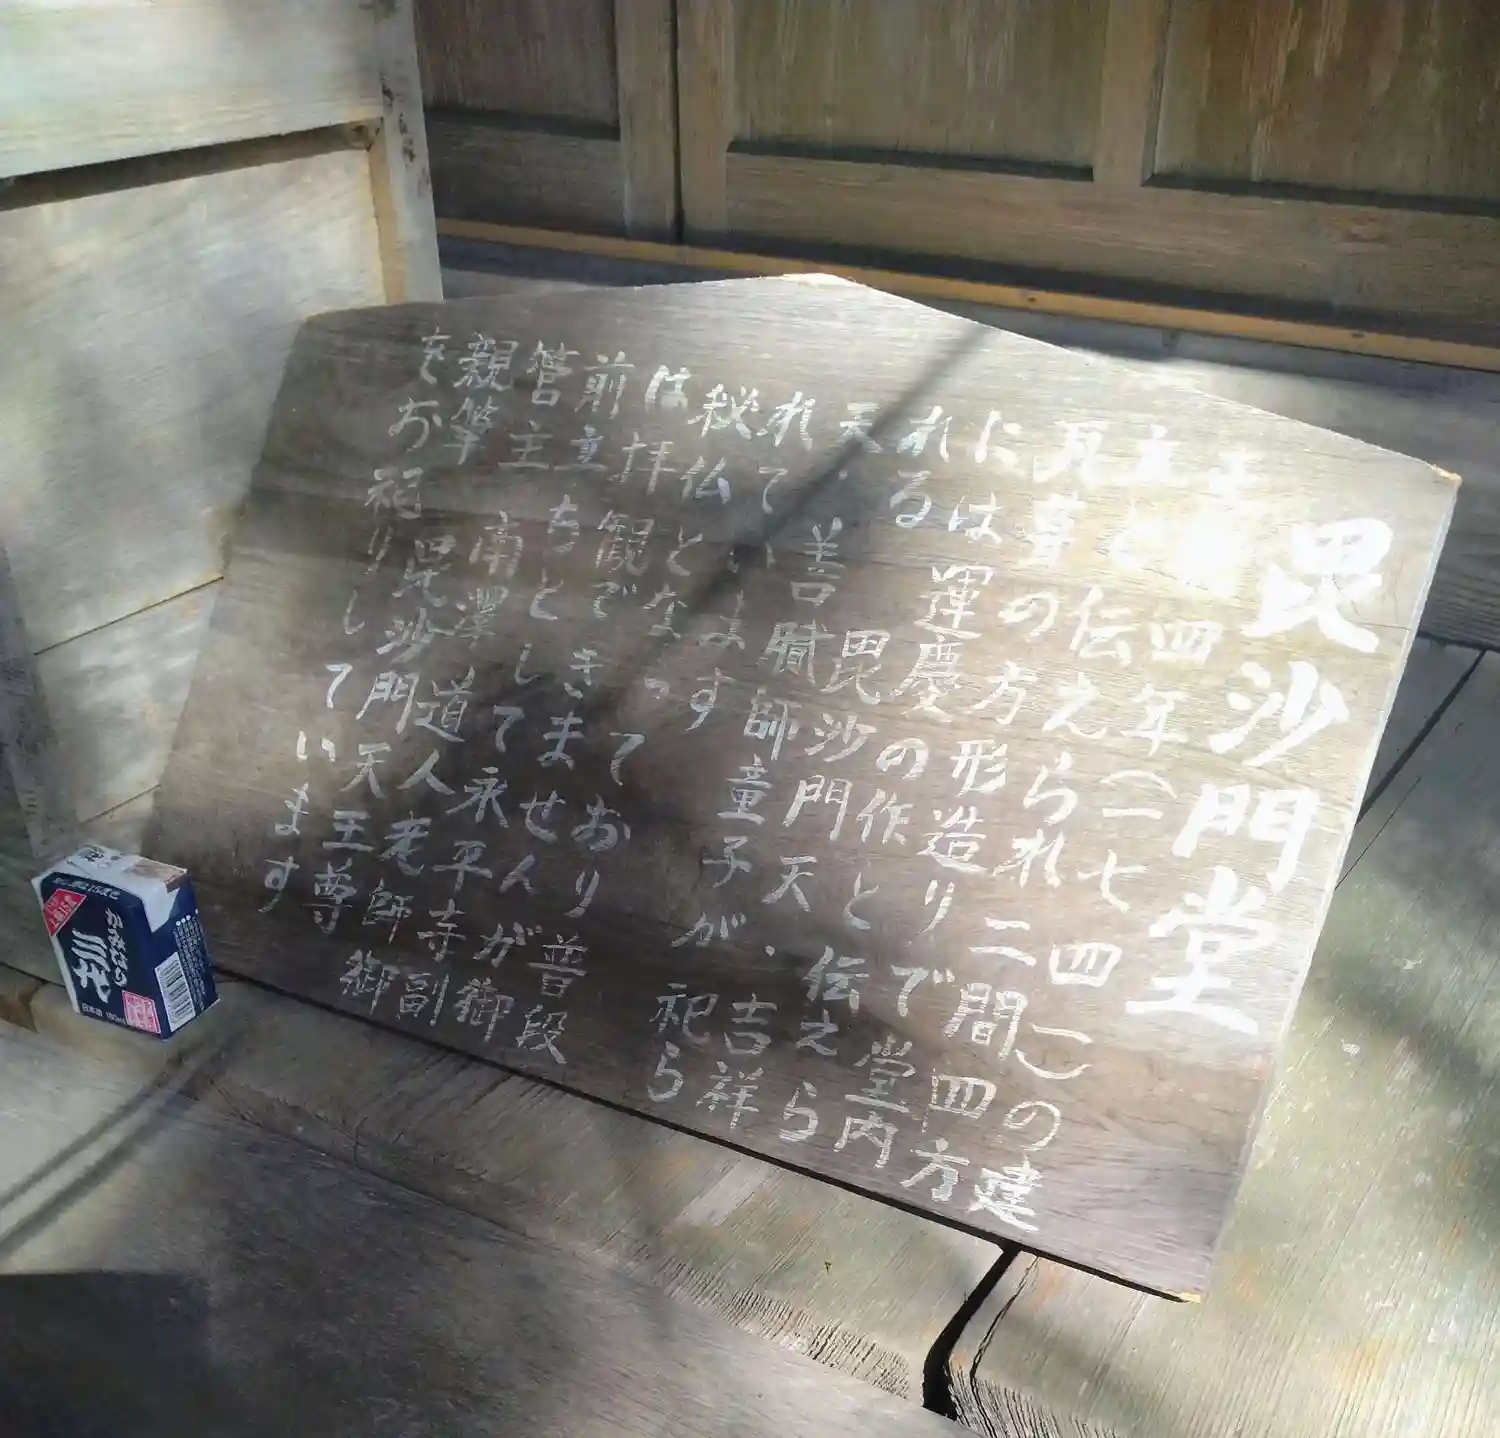 毘沙門堂
四年（一七四一）の建
立と伝えられ二間四方
瓦葺の方形造りで堂内
には運慶の作と伝えら
れる毘沙門天・吉祥
天・善膩師童子が祀ら
れています
秘仏となっており普段
は拝観できませんが御
前立ちとして永平寺副
管主南澤道人老師御
親筆毘沙門天王尊
をお祀りしています
三代
日本酒 180ml